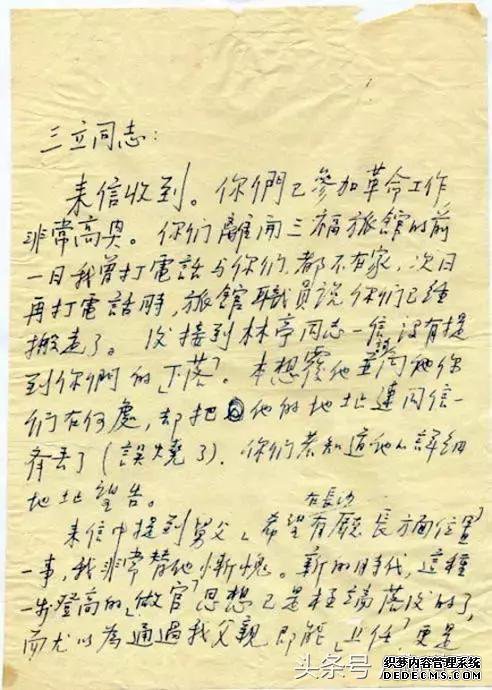 三立同志:
来信收到。你們已參加革命工作,
非常高興。你们離開三福旅館的前
一日我曾打電話与你们,都不在家,次日
再打電話时,旅館職員說你们已經
搬走了。後接到林亭同志一信,没有提
到你們的「下落」。本想覆他並詢问他你
们在何處,却把他的地址連同信一
齐丟了(誤燒了)。你们若知道他的詳細
地址望告。
来信中提到舅父「希望在長沙有厰長方面位置」
一事,我非常替他慚愧。新的時代,這種
一步登高的「做官」思想已是極端落後的了,
而尤以為通過我父親即能「上任」,更是
头条号
织梦内容管理系统
DEDECMS.COM